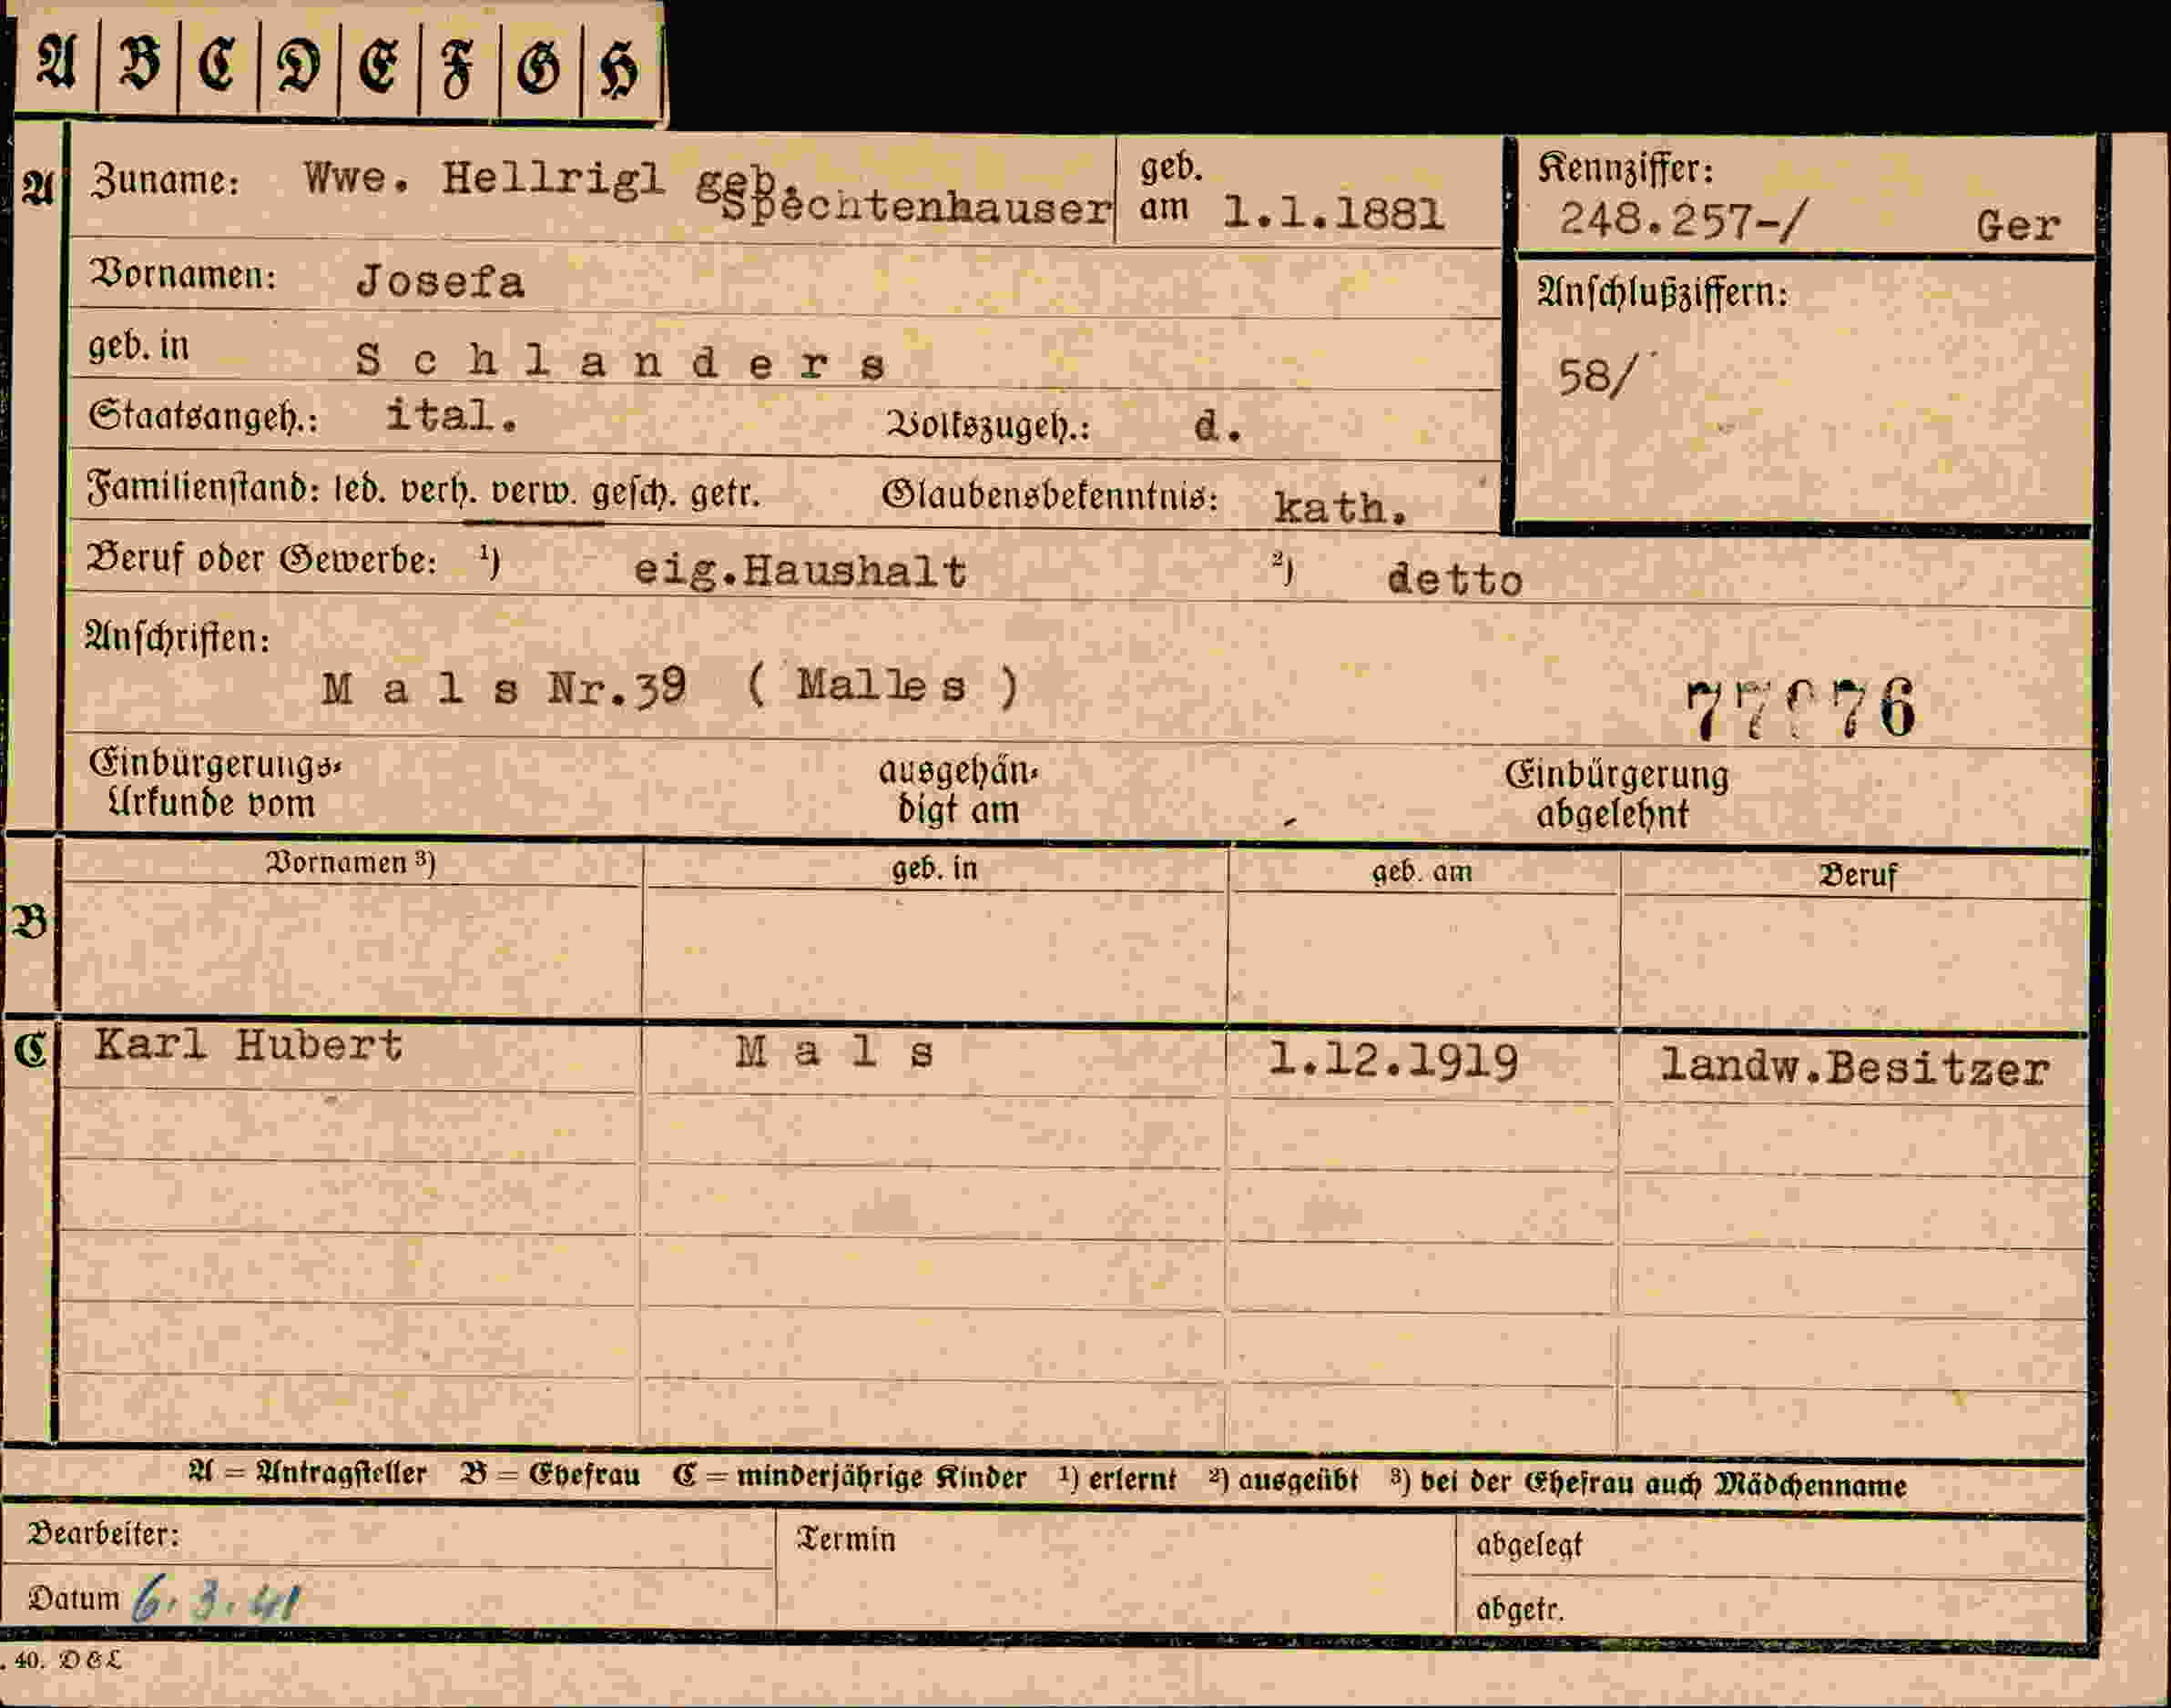 A B C D E F G H
A Zuname: Wwe. Hellrigl geb. Spechtenhauser geb. am 1.1.1881 Kennziffer: 248.257-/ Ger
Vornamen: Josefa Anschlußziffern:
geb. in Schlanders 58/
Staatsangeh.: ital. Volkszugeh.: d.
Familienstand: led. verh. verw. gesch. getr. Glaubensbekenntnis: kath.
Beruf oder Gewerbe: ¹) eig.Haushalt ²) detto
Anschriften:
Mals Nr.39 (Malles)
Einbürgerungs-
Urkunde vom
ausgehän-
digt am
Einbürgerung
abgelehnt
B Vornamen ³) geb. in geb. am Beruf
C Karl Hubert Mals 1.12.1919 landw.Besitzer
A = Antragsteller B = Ehefrau C = minderjährige Kinder ¹) erlernt ²) ausgeübt ³) bei der Ehefrau auch Mädchenname
Bearbeiter: Termin abgelegt
Datum 6.3.41 abgetr.
. 40. D & L